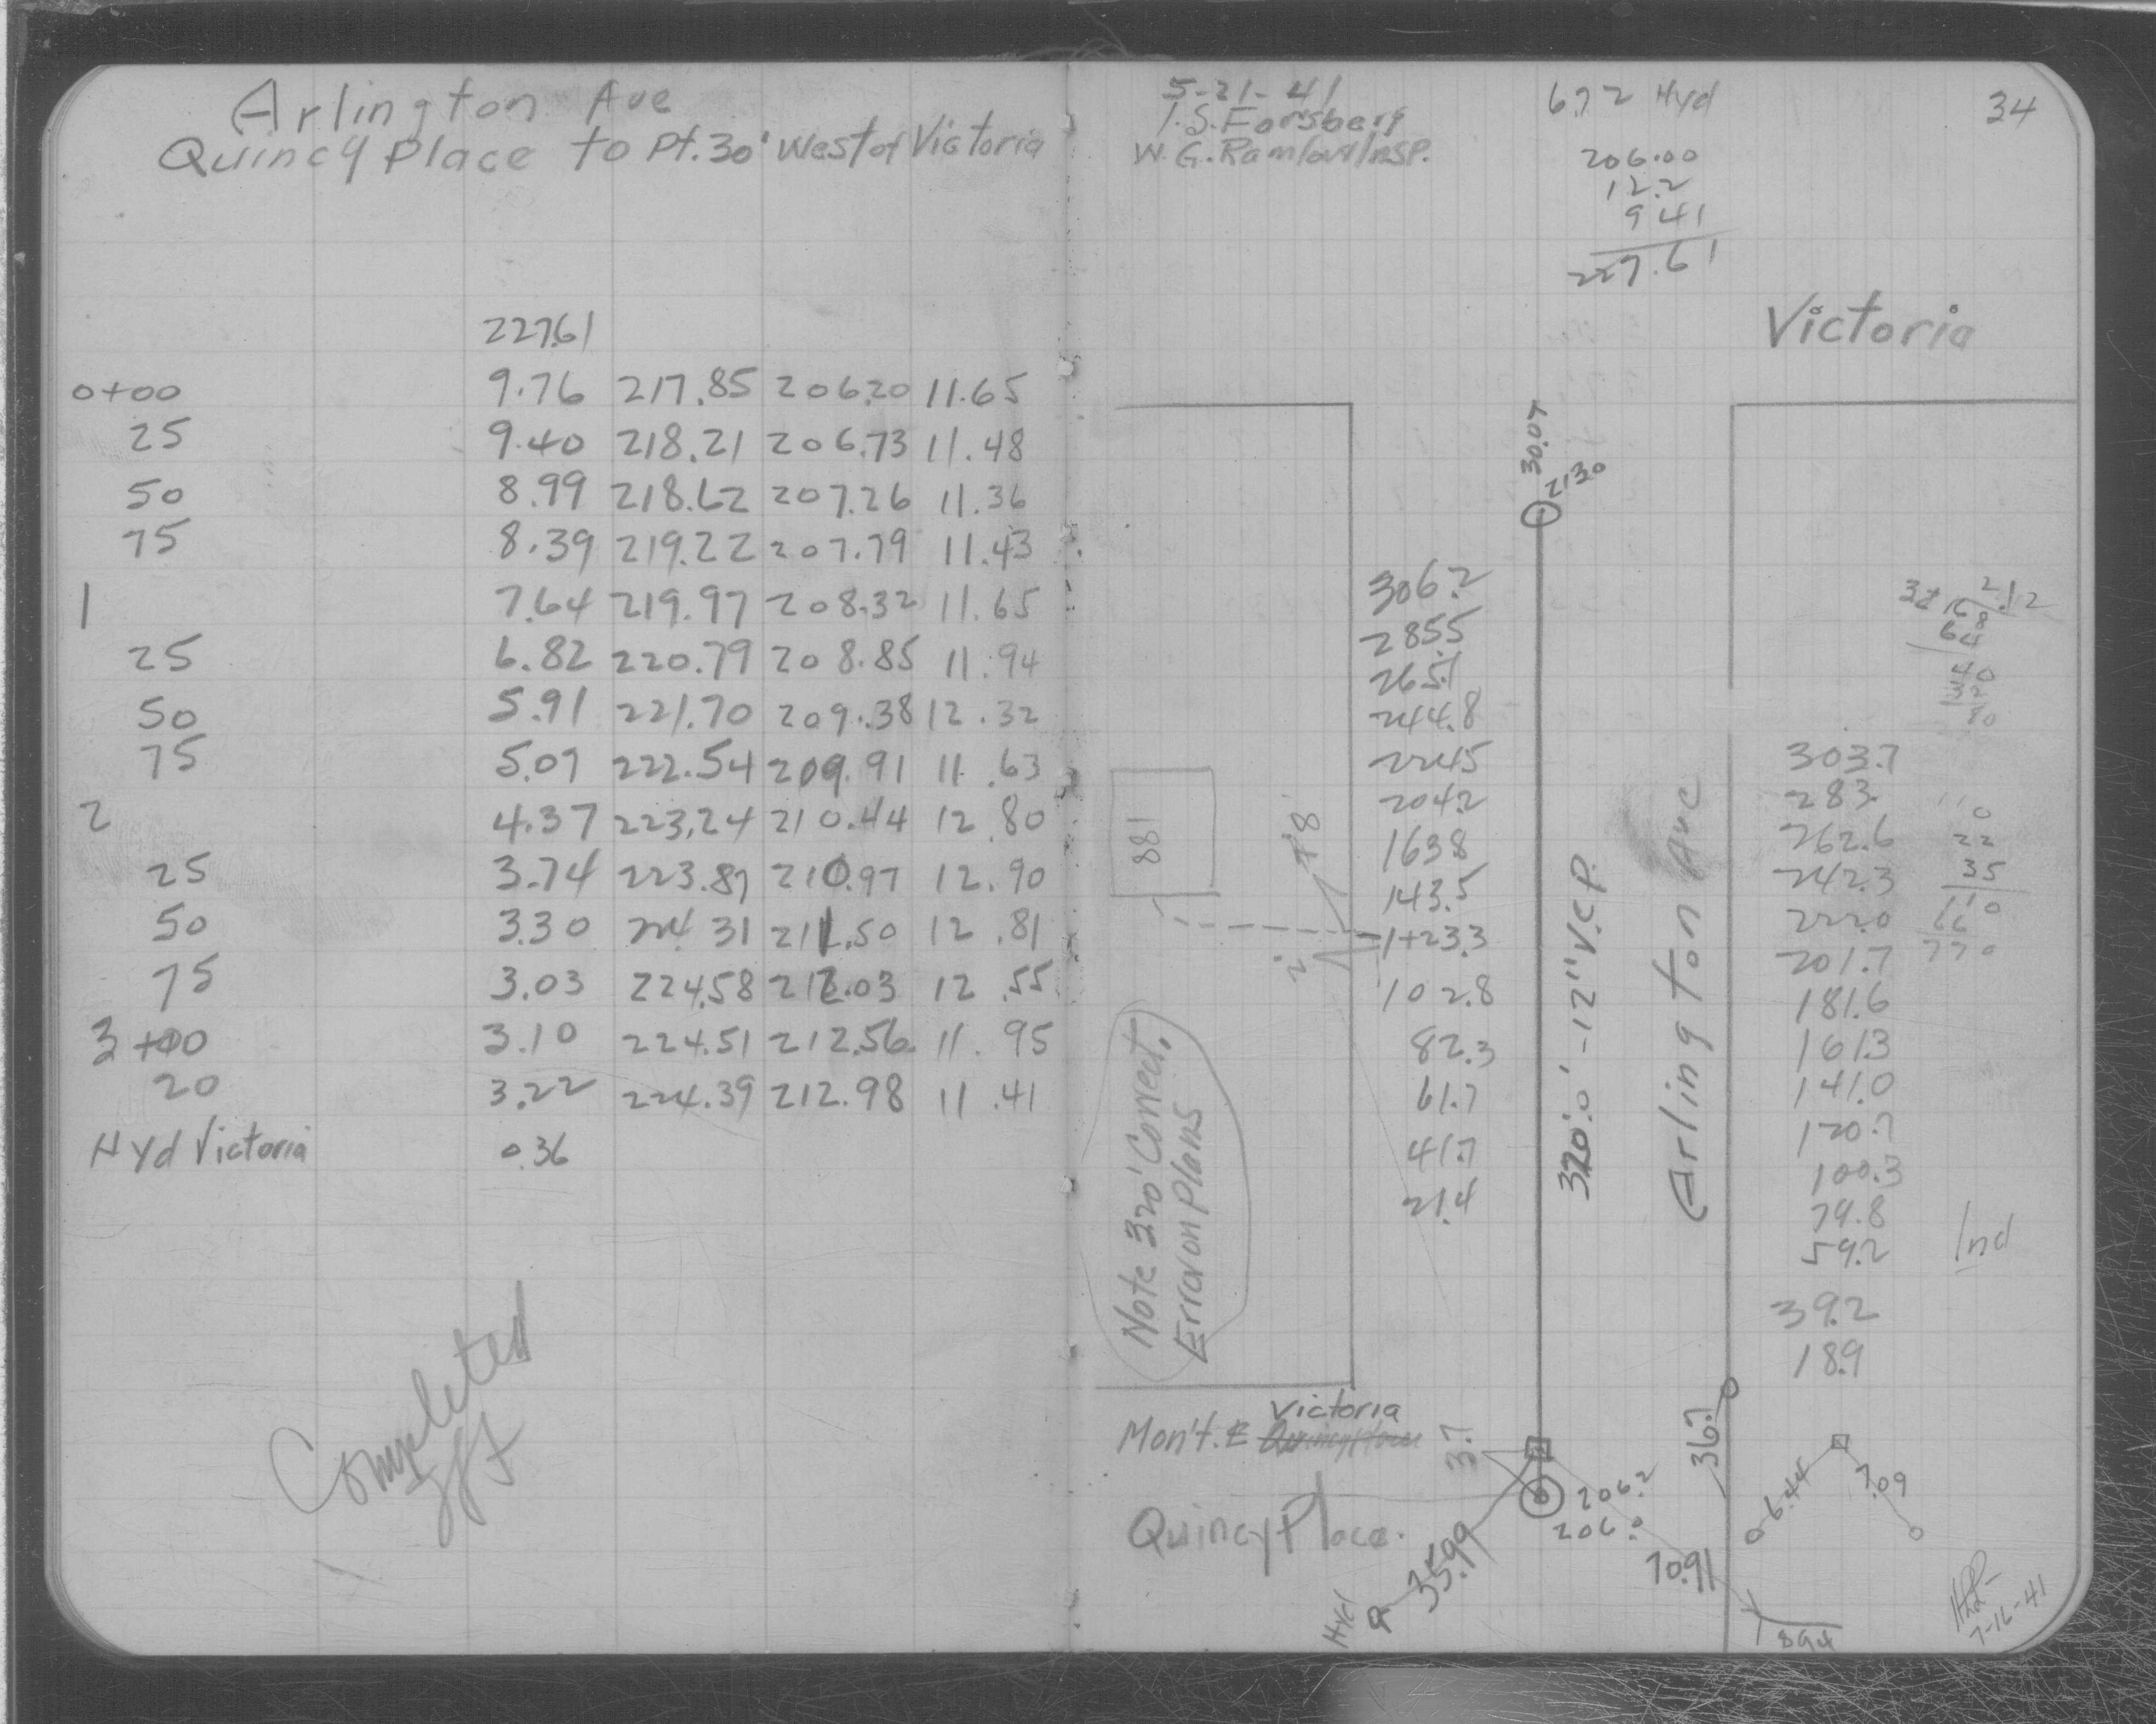 Arlington Ave
Quincy Place to Pt. 30' West of Victoria
227.61
0+00 9.76 217.85 206.20 11.65
25 9.40 218.21 206.73 11.48
50 8.99 218.62 207.26 11.36
75 8.39 219.22 207.79 11.43
1 7.64 219.97 208.32 11.65
25 6.82 220.79 208.85 11.94
50 5.91 221.70 209.38 12.32
75 5.07 222.54 209.91 11.63
2 4.37 223.24 210.44 12.80
25 3.74 223.87 210.97 12.90
50 3.30 224 31 211.50 12.81
75 3.03 224.58 212.03 12.55
3+00 3.10 224.51 212.56 11.95
20 3.22 224.39 212.98 11.41
Hyd Victoria 0.36
Completed
5-21-41
I.S. Forsberg
W. G. Insp.
672 Hyd
34
206.00
12.2
9 41
227.61
Victoria
30.07
2130
306.2
285.5
265.1
244.8
224.5
204.2
163.8
143.5
1+23.3
102.8
82.3
61.7
41.7
21.4
881
2'
320.0' - 12" V.C.P.
Arlington Ave
2.12
303.7
283.
262.6
242.3
222.0
201.7
181.6
161.3
141.0
120.7
100.3
79.8
59.2
39.2
18.9
0
22
35
110
66
770
Ind
Note 320' Correct.
Error on Plans
Victoria
Mon't. ⅊
3.7
36.7
Quincy Place.
206.2
206.0
Hyd
35.99
70.91
894
6.44
7.09
7-16-41